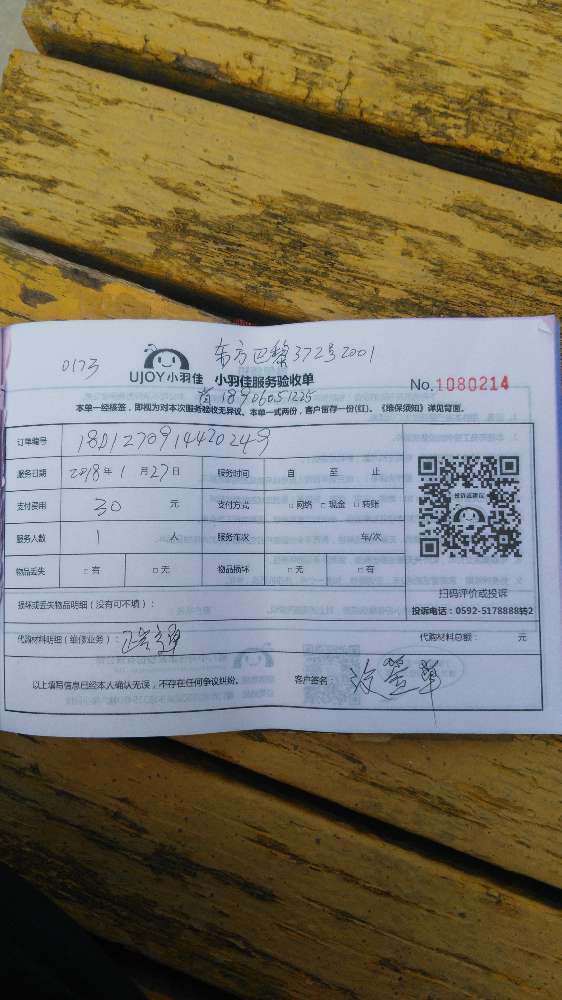 东方巴黎372号2001
0173
UJOY小羽佳 小羽佳服务验收单
No.1080214
18906051225
本单一经核签，即视为对本次服务验收无异议。本单一式两份，客户留存一份(红)。《维保须知》详见背面。
订单编号 180127091442024号
服务日期 2018年1月27日 服务时间 自 至 止
支付费用 30 元 支付方式 □网络 □现金 □转账
服务人数 1 人 服务车次 车/次
物品丢失 □有 □无 物品损坏 □无 □有
扫码评价或投诉
投诉电话：0592-5178888转2
损坏或丢失物品明细（没有可不填）：
代购材料明细（维修业务）： 代购材料总额： 元
以上填写信息已经本人确认无误，不存在任何争议纠纷。 客户签名：